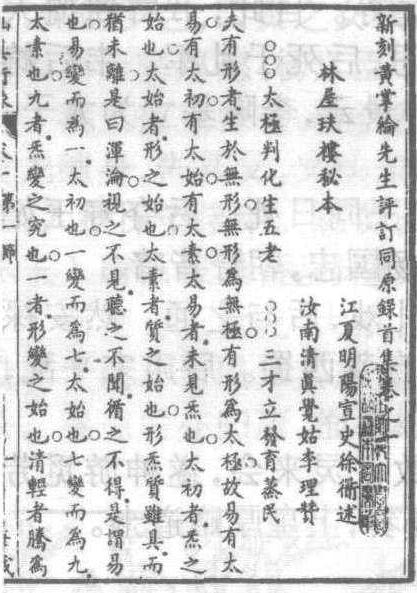 新刻黃掌綸先生評訂同原錄首集卷之一
江夏明陽宣史徐衟述
林屋玞樓秘本
汝南清眞覺姑李理贊
○○○太極判化生五老 ○○○三才立發育蒸民
夫有形者生於無形無形爲無極有形爲太極故易有太
易有太初有太始有太素太易者未見炁也太初者炁之
始也太始者形之始也太素者質之始也形炁質雖具而
猶未離是曰渾淪視之不見聽之不聞循之不得是謂易
也易變而爲一太初也一變而爲七太始也七變而爲九
太素也九者炁變之究也一者形變之始也清輕者騰爲
卷一 第一節